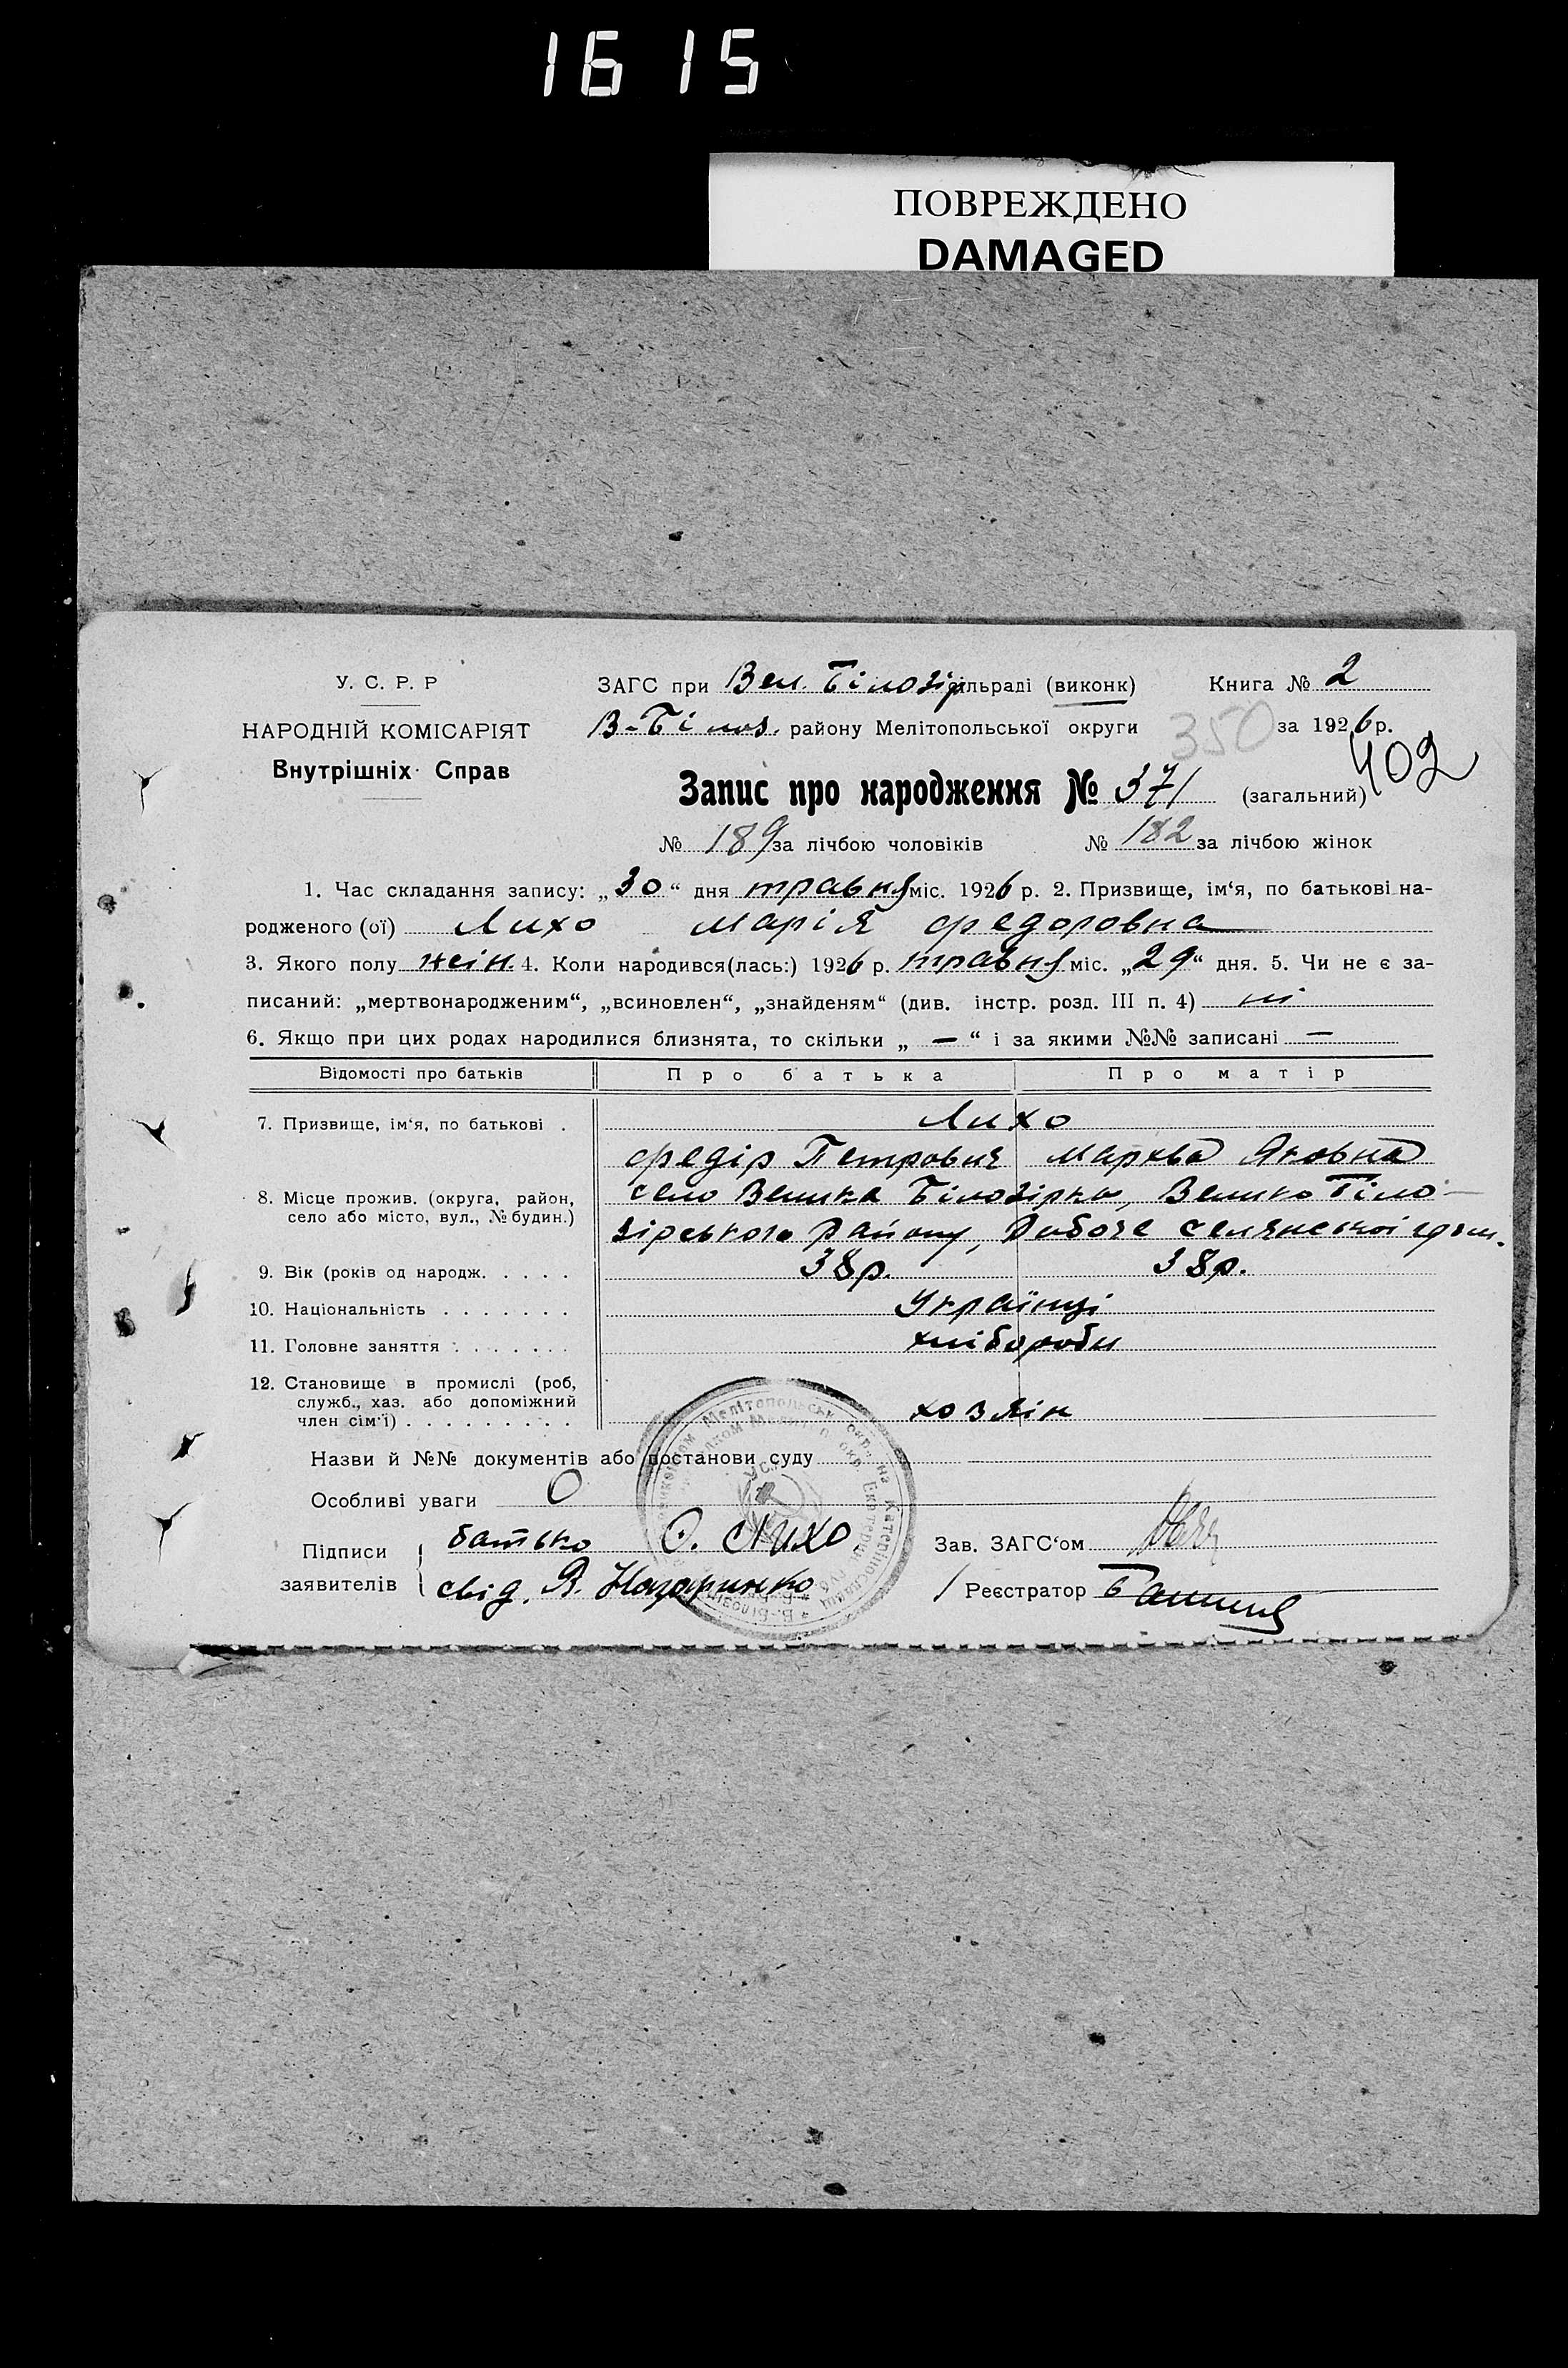 1615
ПОВРЕЖДЕНО
DAMAGED
У. С. Р. Р
НАРОДНІЙ КОМІСАРІЯТ
Внутрішніх Справ
ЗАГС при Вел. Білозір сільраді (виконк) Книга № 2
В-Білоз. району Мелітопольської округи 350 за 1926 р.
402
Запис про народження № 371 (загальний)
№ 189 за лічбою чоловіків № 182 за лічбою жінок
1. Час складання запису: „30“ дня травня міс. 1926 р. 2. Призвище, ім‘я, по батькові на-
родженого (ої) Лихо Марія Федоровна
3. Якого полу жін. 4. Коли народився(лась:) 1926 р. травня міс. „29“ дня. 5. Чи не є за-
писаний: „мертвонародженим“, „всиновлен“, „знайденям“ (див. інстр. розд. III п. 4) ні
6. Якщо при цих родах народилися близнята, то скільки „ — “ і за якими №№ записані —
Відомості про батьків Про батька Про матір
7. Призвище, ім‘я, по батькові . Лихо
Федір Петрович Марква Яковна
8. Місце прожив. (округа, район, село Велика Білозірка, Велико Біло-
село або місто, вул., № будин.) зірського Району, Робоче селянської
9. Вік (років од народж. . . . . 38р. 38р.
10. Національність . . . . . . . Українці
11. Головне заняття . . . . . . . хлібороби
12. Становище в промислі (роб,
служб., хаз. або допоміжний
член сім‘ї) . . . . . . . . . хозяїн
Назви й №№ документів або постанови суду
Особливі уваги
Підписи
заявителів
батько Ѳ. Лихо
свід. Назаринко
Зав. ЗАГС‘ом
Реєстратор